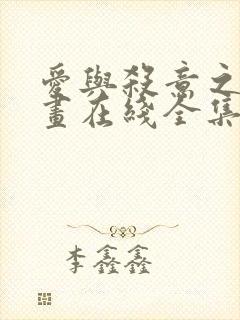 愛與殺意之
畫在綫全集
李鑫鑫